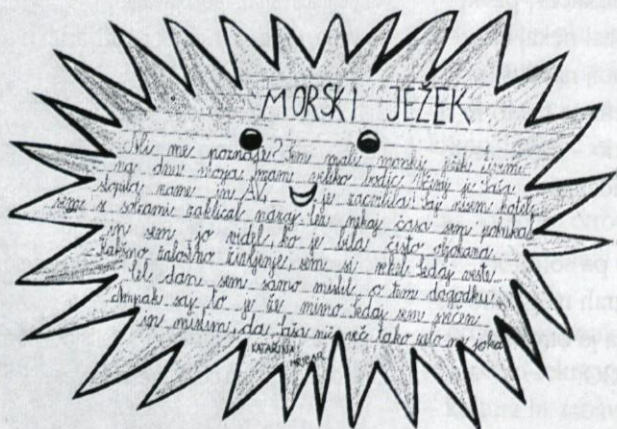 MORSKI JEŽEK
Ali me poznate? Sem mali morski ježek
na dnu morja. Imam veliko bodic. Včeraj je Taša
stopila name in AV, je zacvilila. Saj nisem hotel,
sem s solzami zaklical nazaj. Čez nekaj časa sem pokukal
in sem jo videl, ko je bila čisto objokana.
Kakšno žalostno življenje, sem si rekel. Sedaj veste
Cel dan sem samo mislil o tem dogodku,
ampak saj to je že mimo. Sedaj sem srečen
in mislim, da Taša nič več tako zelo ne joka.
KATARINA